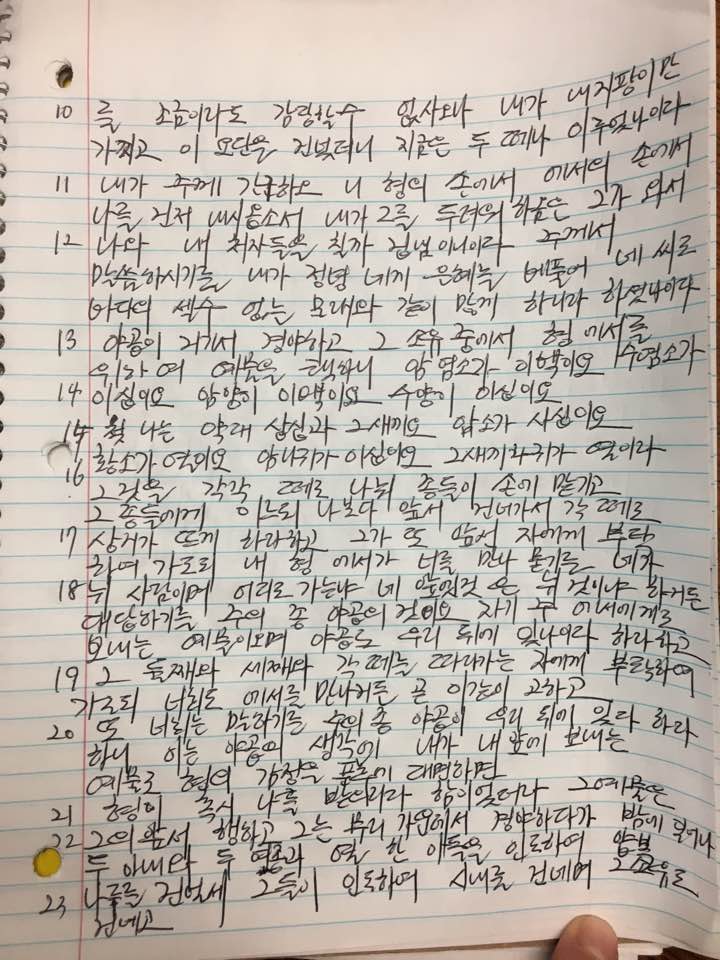 10 를 조금이라도 감당할수 없사오나 내가 내지팡이만
가찌고 이 요단을 건넜더니 지금은 두 떼나 이루었나이다
11 내가 주께 간구하오니 내 형의 손에서 에서의 손에서
나를 건져 내시옵소서 내가 그를 두려워 하옴은 그가 와서
12 나와 내 처자들을 칠까 겁냄이니이다 주께서
말씀하시기를 내가 정녕 네게 은혜를 베풀어 네 씨로
바다의 셀수 없는 모래와 같이 많게 하리라 하셨나이다
13 야곱이 거기서 경야하고 그 소유 중에서 형 에서를
위하여 예물을 택하니 암염소가 이백이요 수염소가
14 이십이요 암양이 이백이요 수양이 이십이요
15 젖 나는 약대 삼십과 그새끼요 암소가 사십이요
황소가 열이요 암나귀가 이십이요 그새끼나귀가 열이라
16 그것을 각각 떼로 나눠 종들의 손에 맡기고
그 종들에게 이르되 나보다 앞서 건너가서 각 떼로
17 상거가 뜨게 하라하고 그가 또 앞선 자에게 부탁
하여 가로되 내 형 에서가 너를 만나 묻기를 네가
18 뉘 사람이며 어디로 가느냐 네 앞엣것 은 뉘 것이냐 하거든
대답하기를 주의 종 야곱의 것이요 자기 주 에서에게로
보내는 예물이오며 야곱도 우리 뒤에 있나이다 하라하고
19 그 둘째와 세째와 각 떼를 따라가는 자에게 부탁하여
가로되 너희도 에서를 만나거든 곧 이같이 고하고
20 또 너희는 말하기를 주의 종 야곱이 우리 뒤에 있다 하라
하니 이는 야곱의 생각에 내가 내 앞에 보내는
예물로 형의 감정을 푼후에 대면하면
21 형이 혹시 나를 받으리라 함이었더라 그예물은
22 그의 앞서 행하고 그는 무리 가운데서 경야하다가 밤에 일어나
두 아내와 두 여종과 열 한 아들을 인도하여 얍복
23 나루를 건널새 그들이 인도하여 시내를 건네며 그소유도
건네고